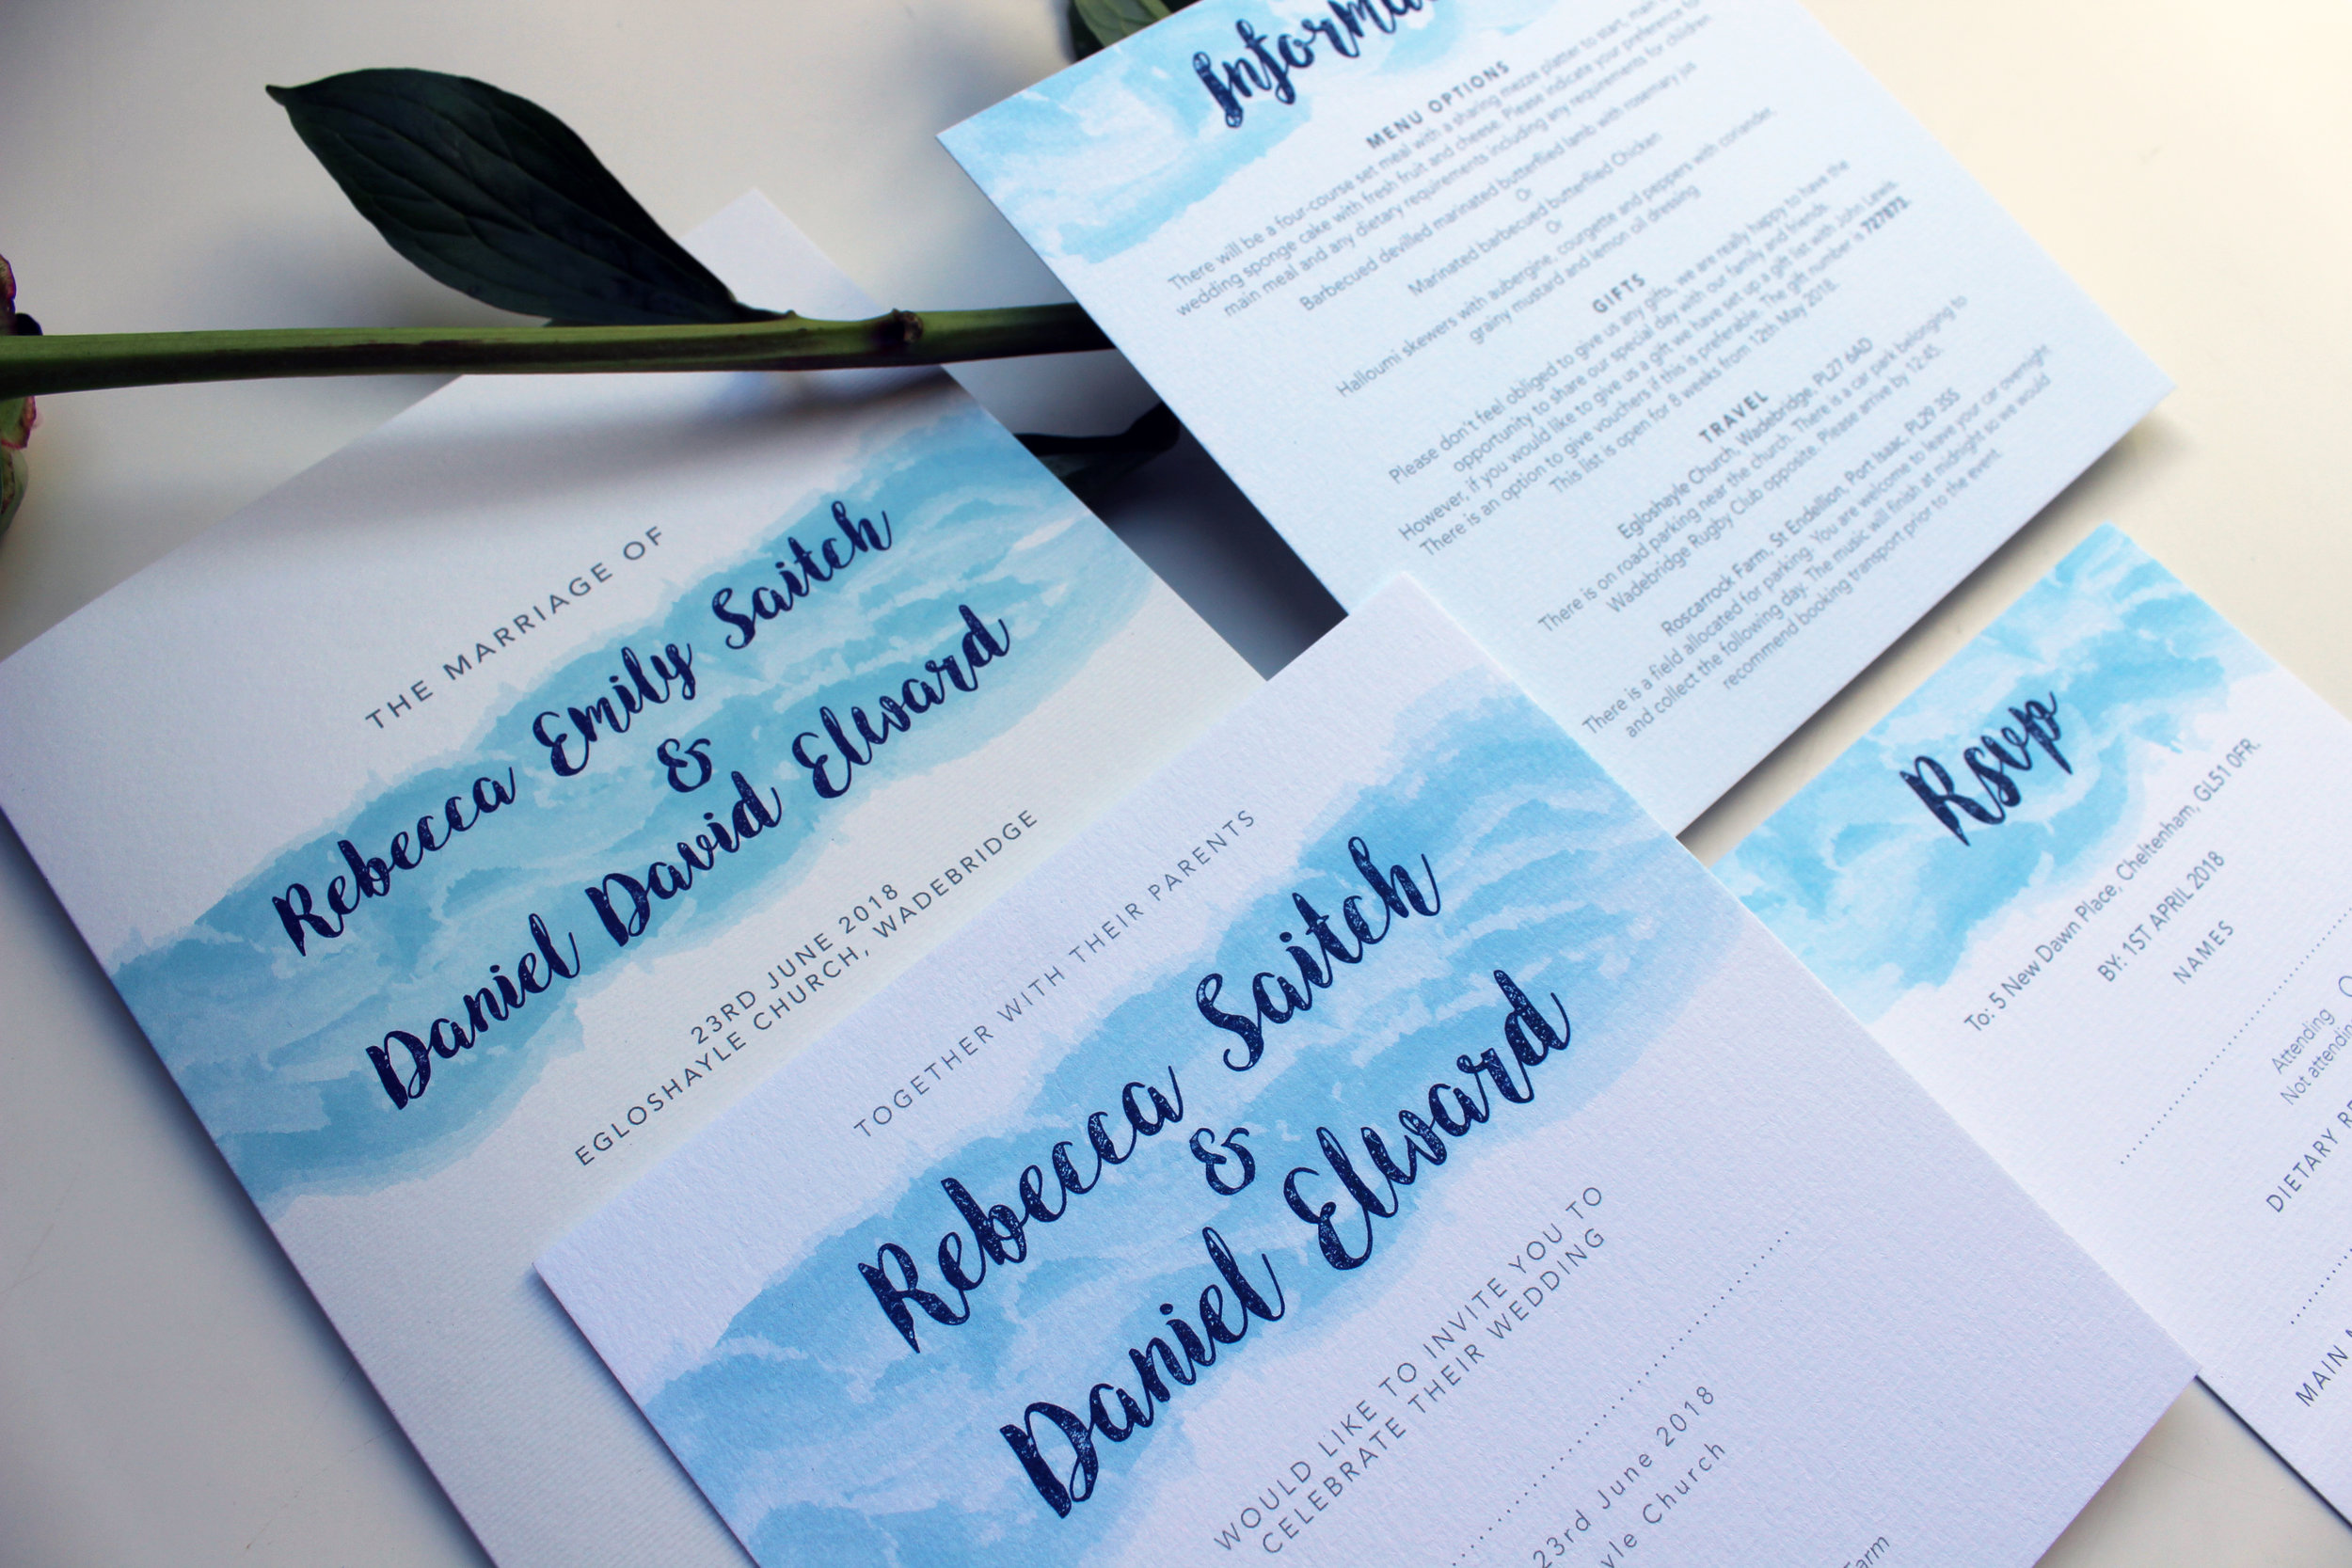 THE MARRIAGE OF
Rebecca Emily Saitch
&
Daniel David Elward
23RD JUNE 2018
EGLOSHAYLE CHURCH, WADEBRIDGE
TOGETHER WITH THEIR PARENTS
Rebecca Saitch
&
Daniel Elward
WOULD LIKE TO INVITE YOU TO
CELEBRATE THEIR WEDDING
23rd June 2018
Church
MENU OPTIONS
There will be a four-course set meal with a sharing mezze platter to start, main
wedding sponge cake with fresh fruit and cheese. Please indicate your preference
main meal and any dietary requirements including any requirements for children
Barbecued devilled marinated butterflied lamb with rosemary
Or
Marinated barbecued butterflied Chicken
Or
Halloumi skewers with aubergine, courgette and peppers with coriander,
grainy mustard and lemon oil dressing
GIFTS
Please don't feel obliged to give us any gifts, we are really happy to have the
opportunity to share our special day with our family and friends.
However, if you would like to give us a gift we have set up a gift list with John Lewis.
There is an option to give vouchers if this is preferable. The gift number is 727872.
This list is open for 8 weeks from 12th May 2018.
TRAVEL
Egloshayle Church, Wadebridge, PL27 6AD
There is on road parking near the church. There is a car park belonging to
Wadebridge Rugby Club opposite. Please arrive by 12:45.
Roscarrock Farm, St Endellion, Port Isaac, PL29 3SS
There is a field allocated for parking. You are welcome to leave your car overnight
and collect the following day. The music will finish at midnight so we would
recommend booking transport prior to the event.
Rsvp
To: 5 New Dawn Place, Cheltenham, GL51 0FR.
BY: 1ST APRIL 2018
NAMES
Attending
Not attending
DIETARY
MAIN